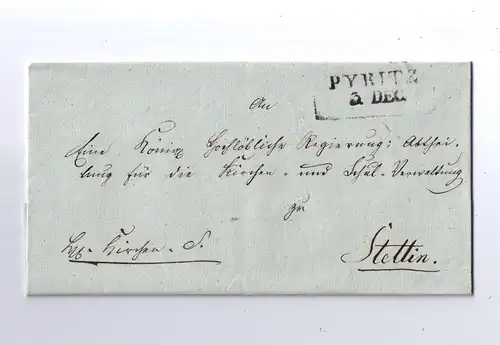 PYRITZ
3. DEC.
An
Eine Königl Hochlöbliche Regierung; Abthei-
lung für die Kirchen- und Schul-Verwaltung
zu
Stettin.
Kirchen-S.